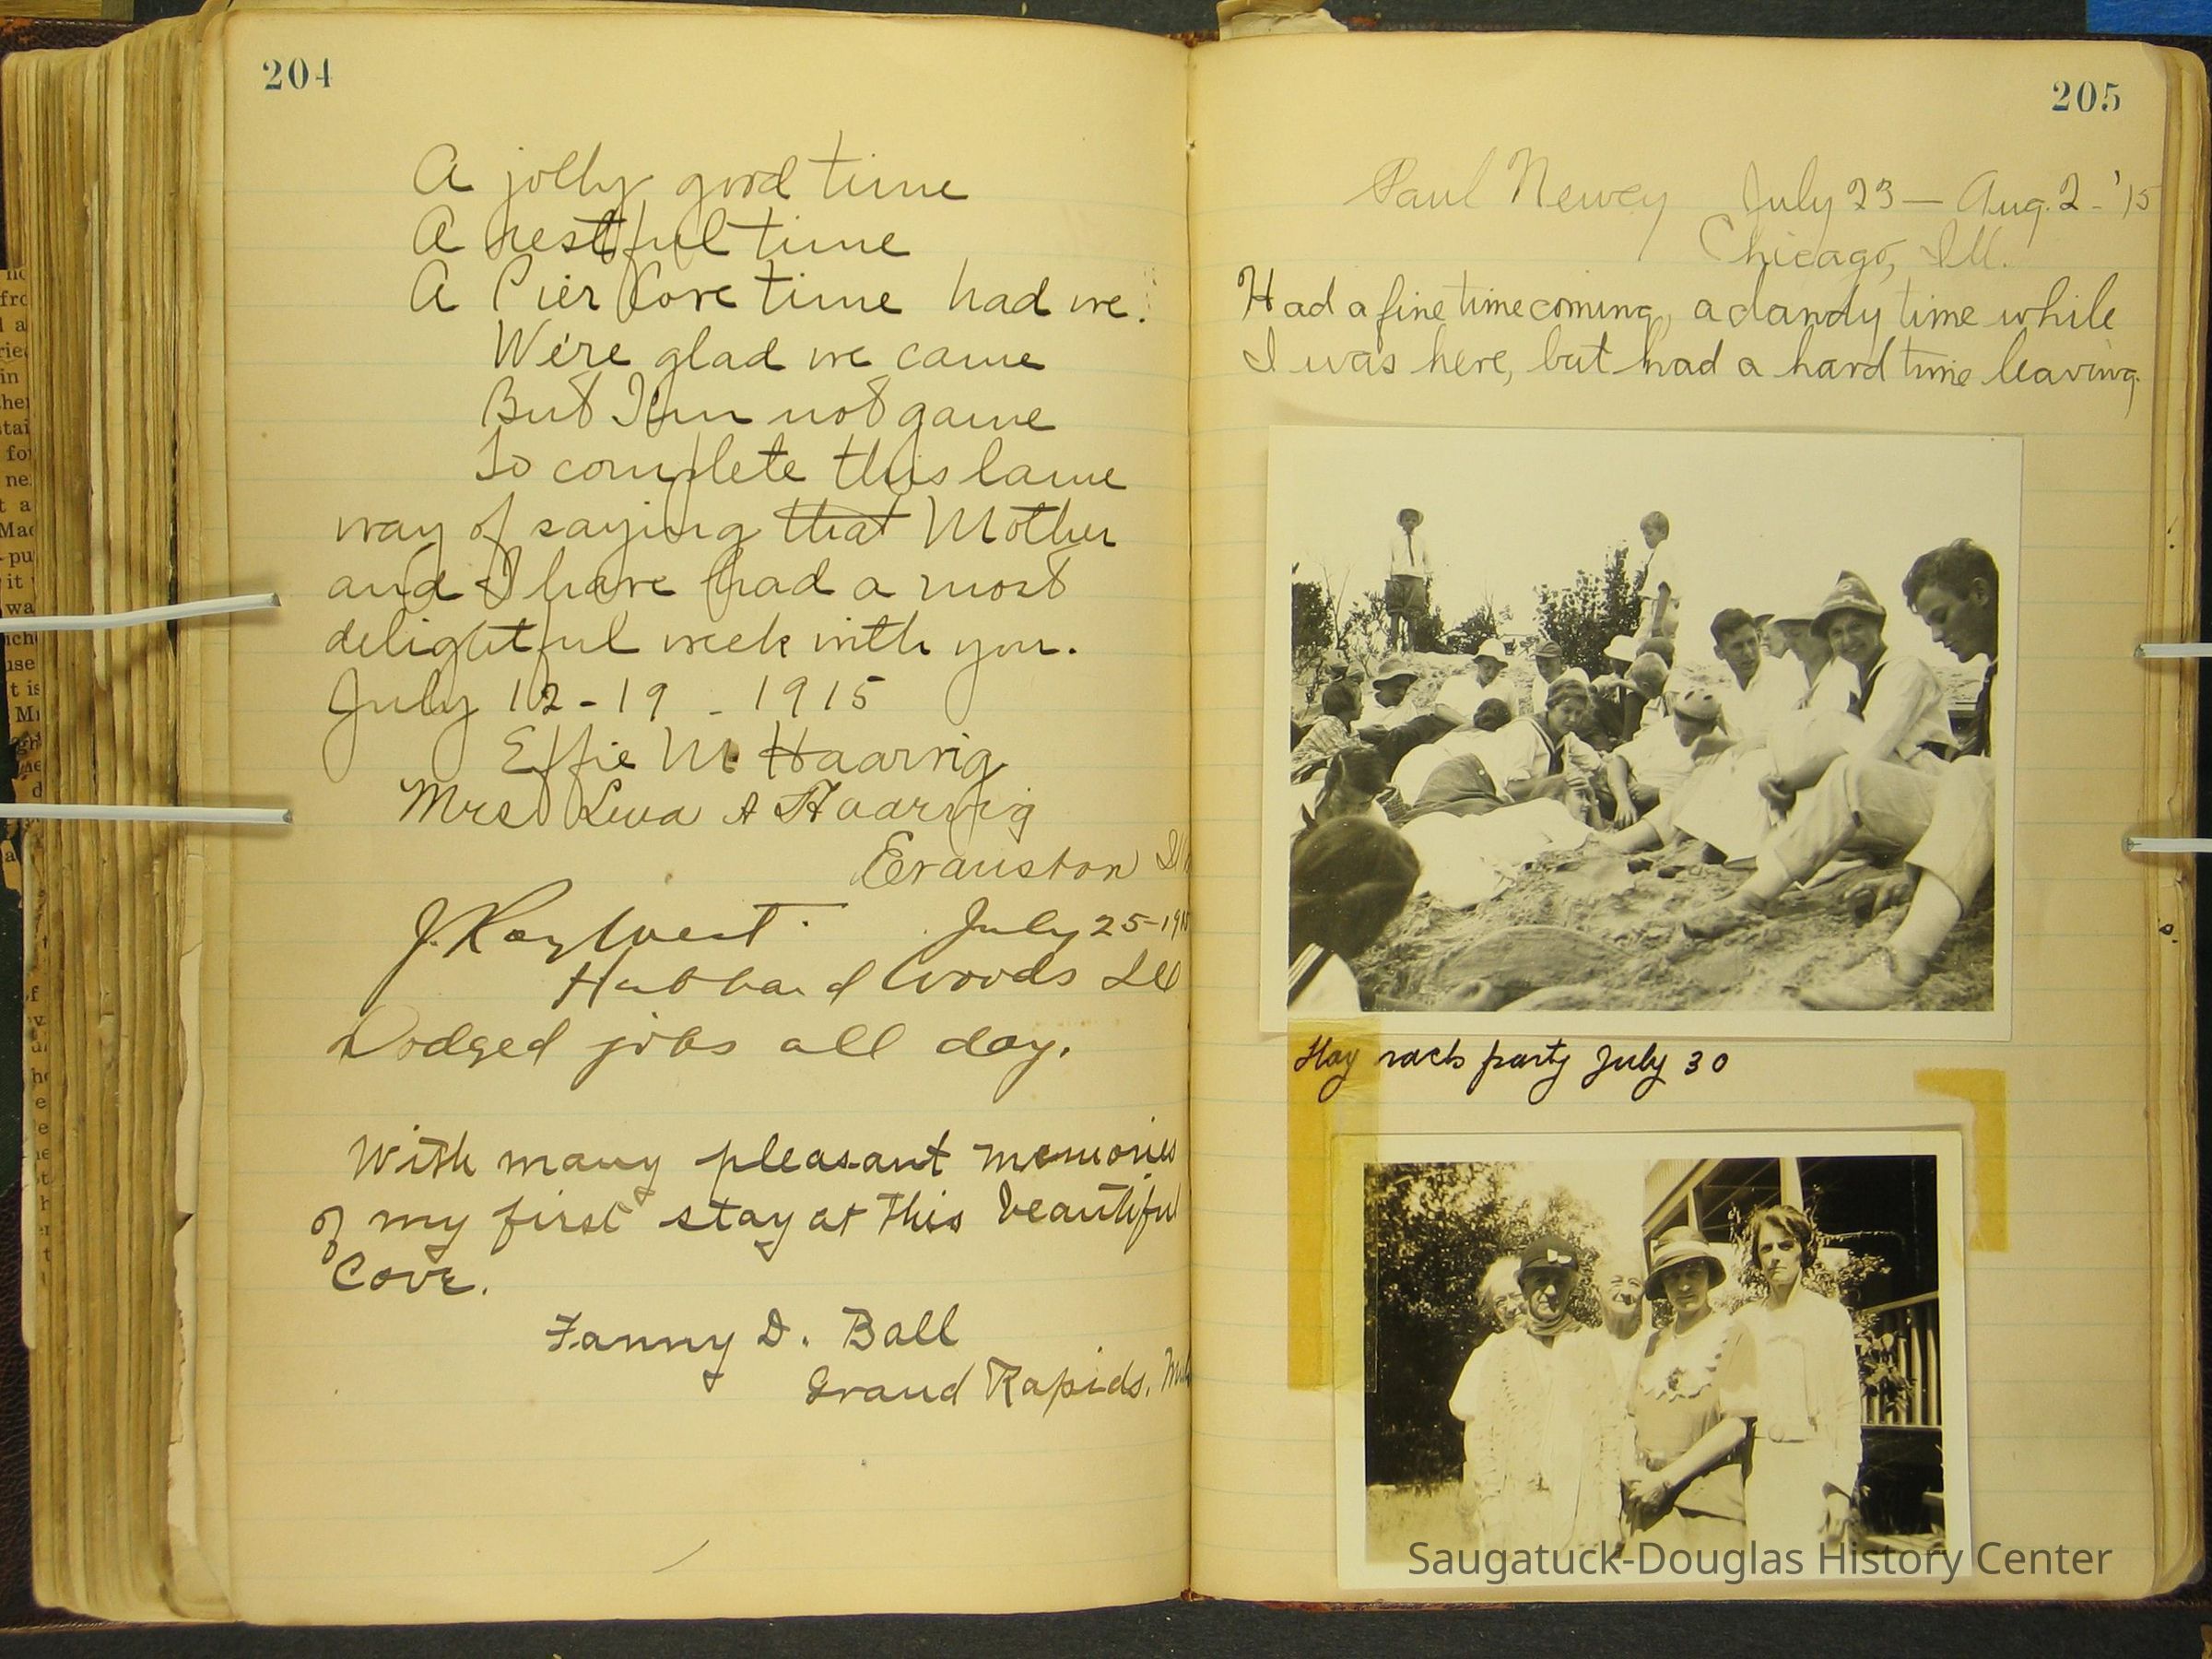 204
A jolly good time
A restful time
A Pier Cove time had we.
We're glad we came
But I'm not game
To complete this lame
way of saying that Mother
and I have had a most
delightful week with you.
July 12-19 - 1915
Effie M Haarvig
Mrs Leva A Haarvig
Evanston Ill
J. Roy West. July 25-1915
Hubbard Woods Ill
Dodged jobs all day.
With many pleasant memories
of my first stay at this beautiful
Cove.
Fanny D. Ball
Grand Rapids, Mich
205
Paul Newey July 23 — Aug. 2 - '15
Chicago, Ill.
Had a fine time coming, a dandy time while
I was here, but had a hard time leaving.
Hay rack party July 30
Saugatuck-Douglas History Center